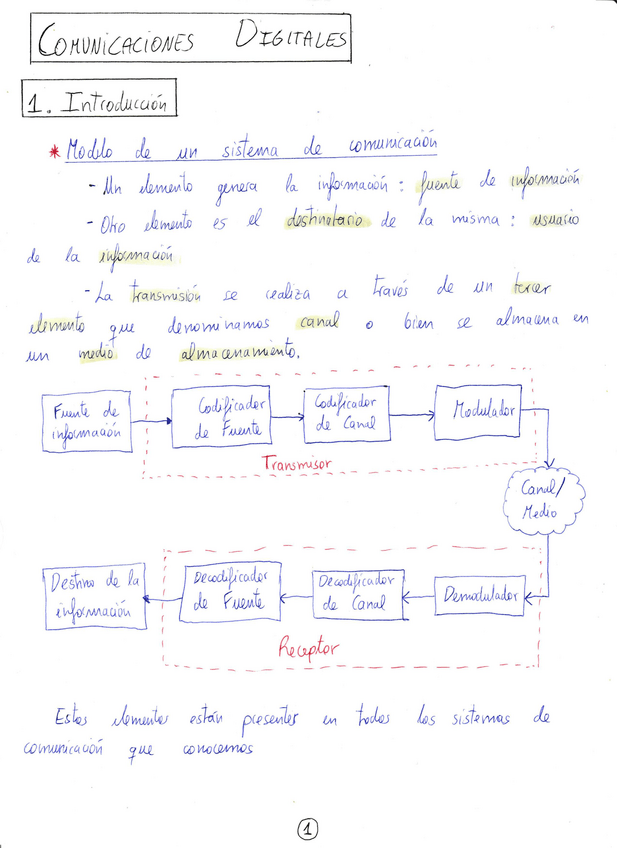 COMUNICACIONES DIGITALES
1. Introducción
* Modelo de un sistema de comunicación
- Un elemento genera la información : fuente de información
- Otro elemento es el destinatario de la misma : usuario
de la información
- La transmisión se realiza a través de un tercer
elemento que denominamos canal o bien se almacena en
un medio de almacenamiento.
Fuente de
información
Codificador
de Fuente
Codificador
de Canal
Modulador
Transmisor
Canal/
Medio
Destino de la
información
Decodificador
de Fuente
Decodificador
de Canal
Demodulador
Receptor
Estos elementos están presentes en todos los sistemas de
comunicación que conocemos
1